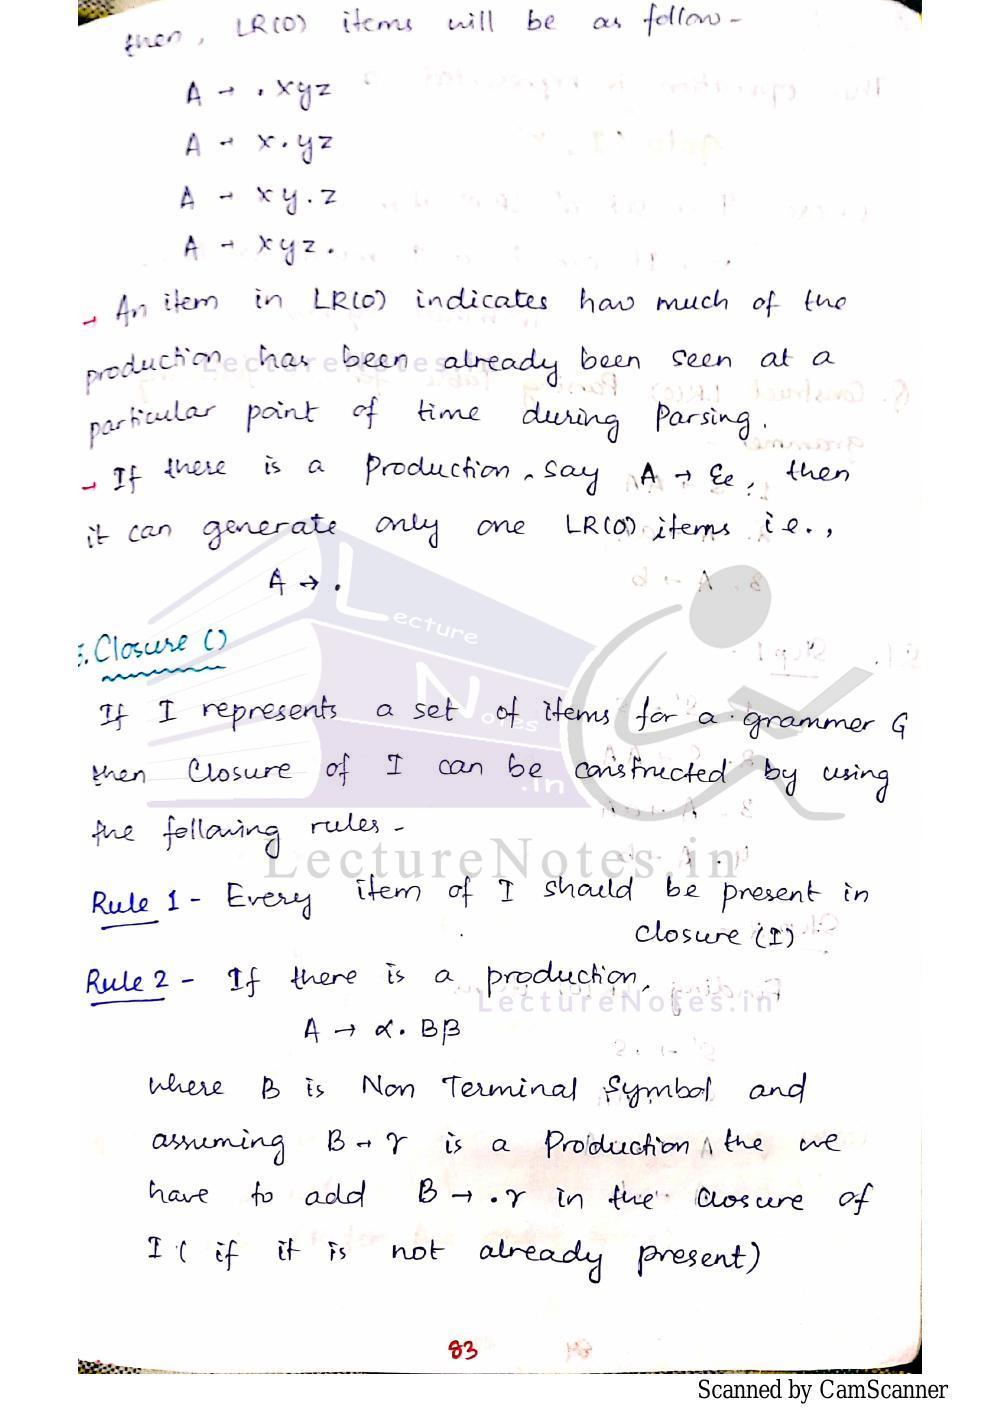 then, LR(0) items will be as follow -
A → . xyz
A → x . yz
A → xy . z
A → xyz .
→ An item in LR(0) indicates how much of the
production has been already been seen at a
LectureNotes.in
particular point of time during Parsing.
→ If there is a Production, say A → Ɛ, then
it can generate only one LR(0) items i.e.,
A → .
Lecture
Notes
.in
Closure ()
If I represents a set of items for a grammer G
then Closure of I can be constructed by using
the following rules -
LectureNotes.in
Rule 1 - Every item of I should be present in
closure (I)
Rule 2 - If there is a production,
LectureNotes.in
A → α . B β
where B is Non Terminal Symbol and
assuming B → γ is a Production, the we
have to add B → . γ in the Closure of
I ( if it is not already present)
83
Scanned by CamScanner